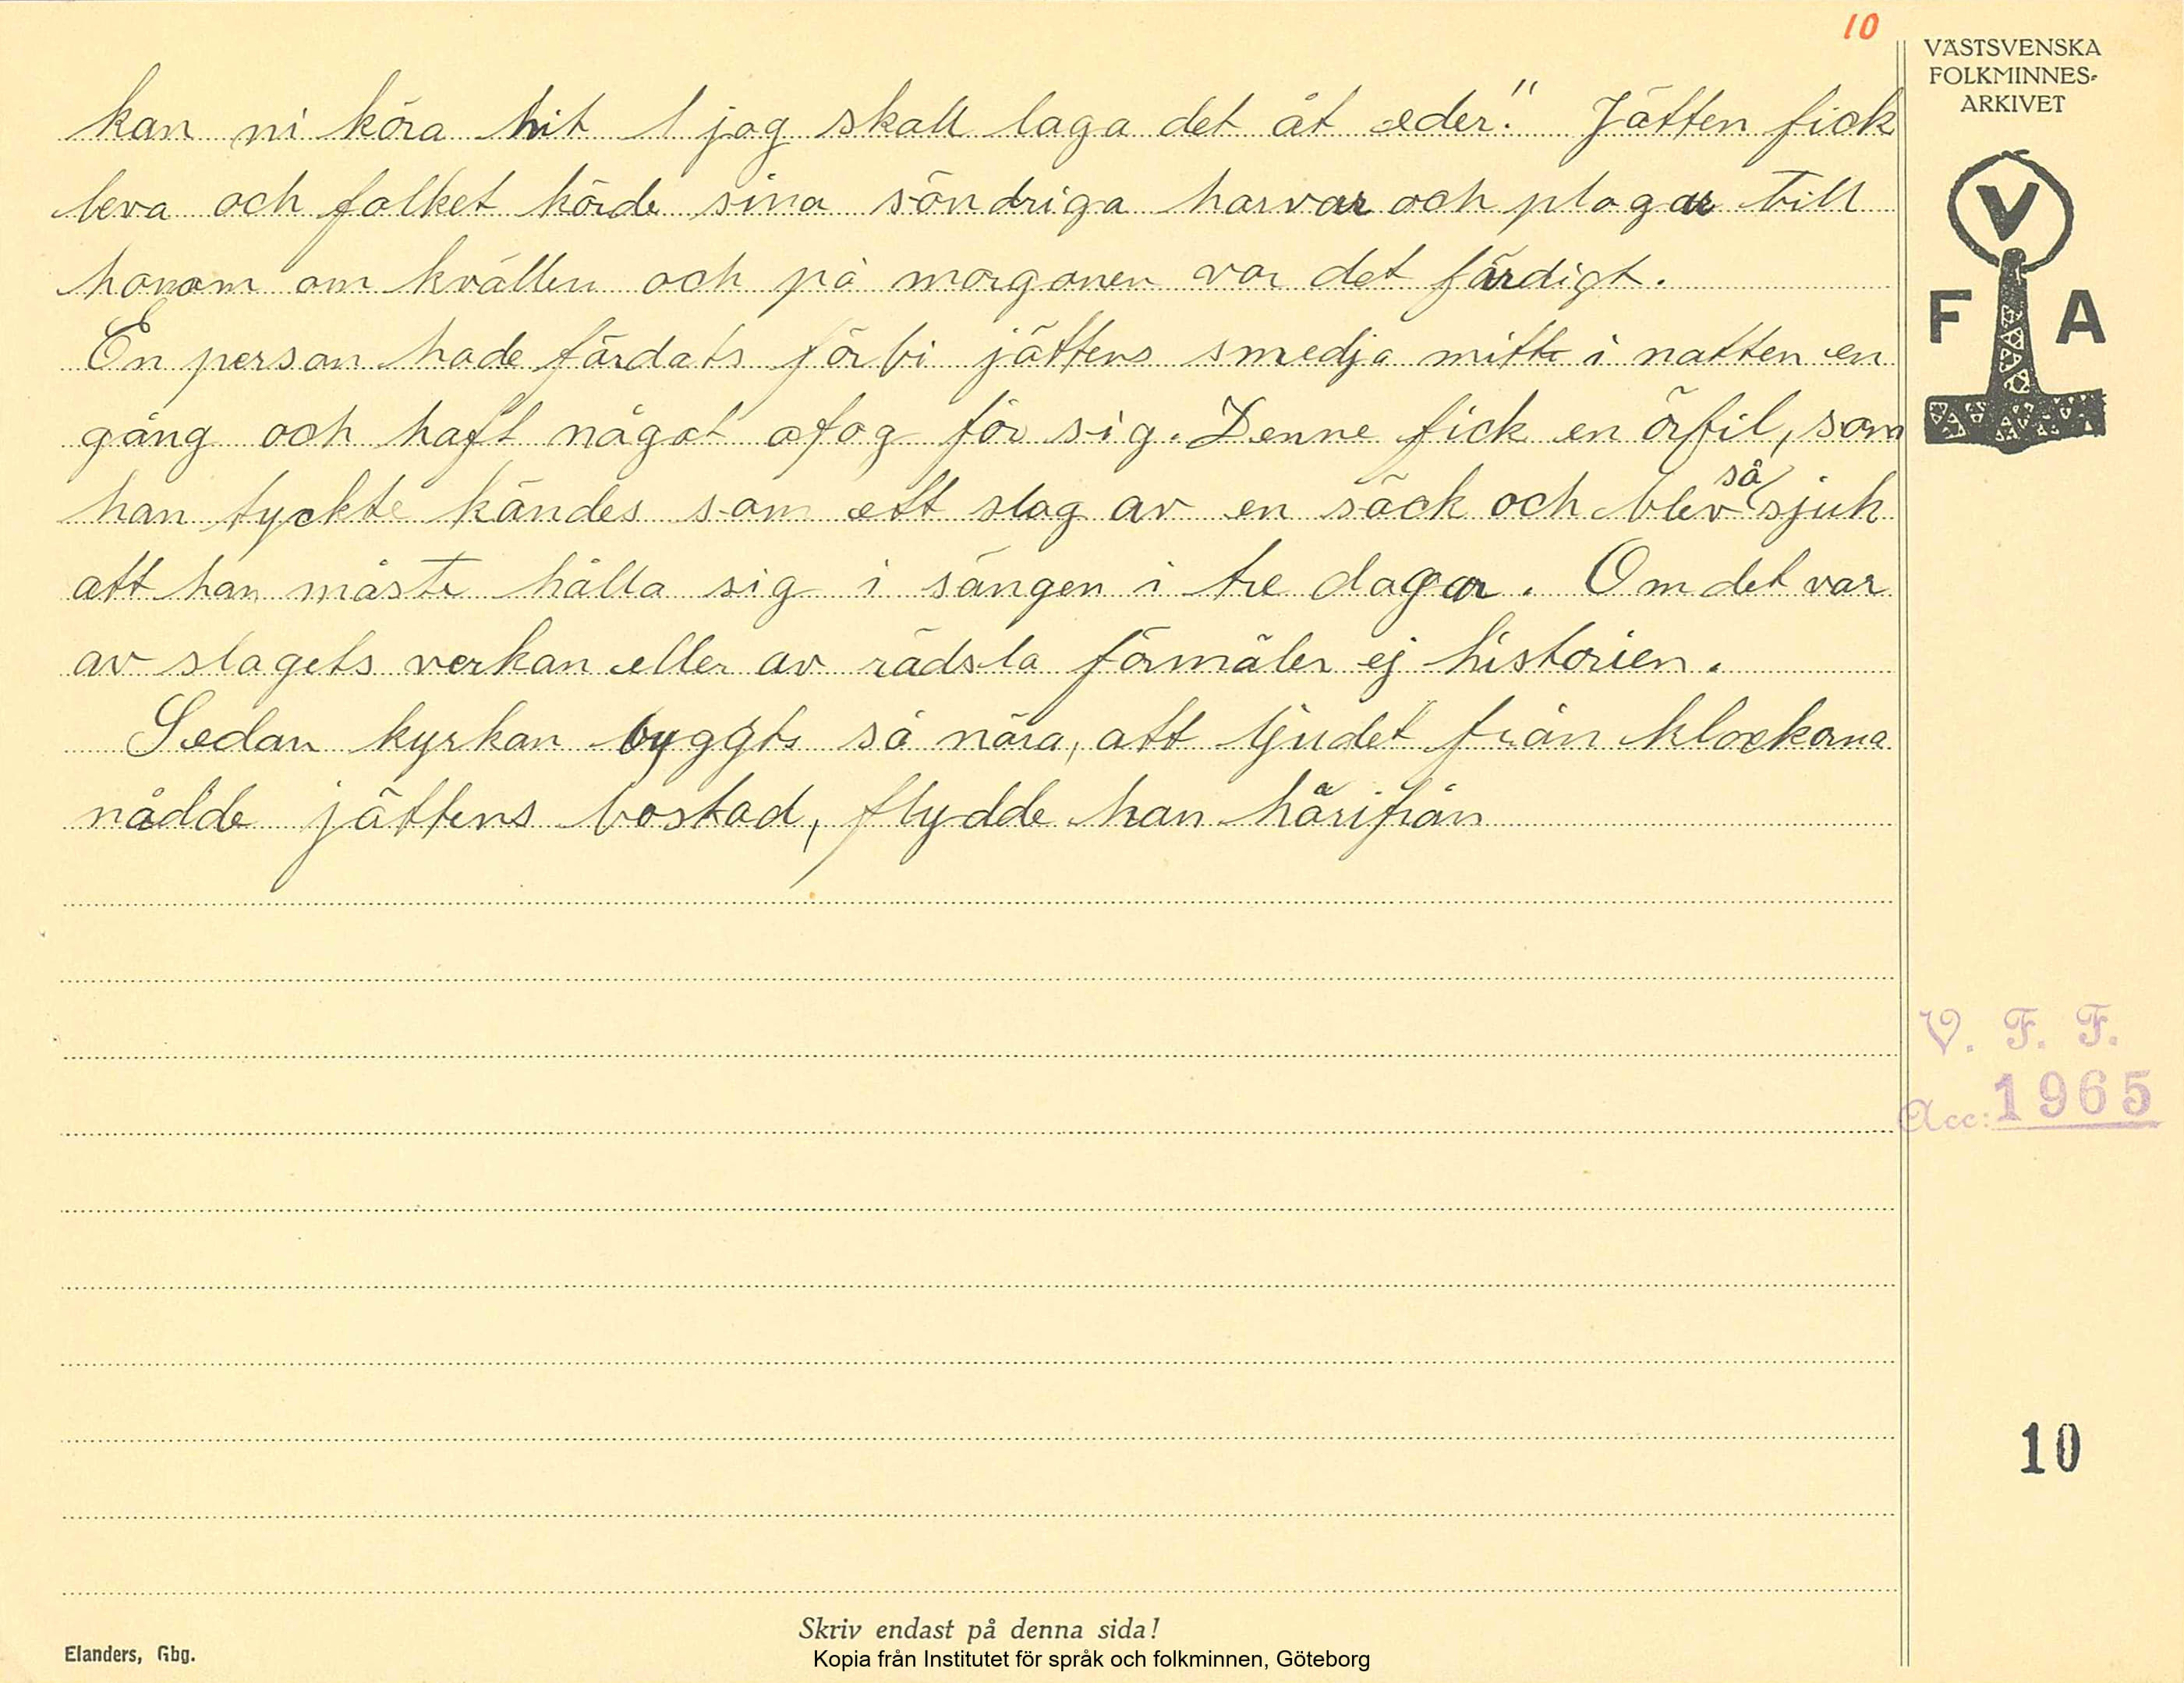 10
kan ni köra hit l jag skall laga det åt eder." Jätten fick
leva och folket körde sina söndriga harvar och plogar till
honom om kvällen och på morgonen var det färdigt.
En person hade färdats förbi jättens smedja mitt i natten en
gång och haft något ofog för sig. Denne fick en örfil, som
han tyckte kändes som ett slag av en säck och blev så sjuk
att han måste hålla sig i sängen i tre dagar. Om det var
av slagets verkan eller av rädsla förmäler ej historien.
Sedan kyrkan byggts så nära, att ljudet från klockorna
nådde jättens bostad, flydde han härifrån
VÄSTSVENSKA
FOLKMINNES-
ARKIVET
V
F A
V. F. F.
Acc: 1965
10
Skriv endast på denna sida!
Elanders, Gbg.
Kopia från Institutet för språk och folkminnen, Göteborg